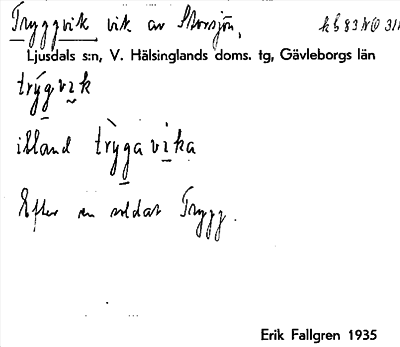 Tryggvik vik av Storsjön, kb 83 NO 31
Ljusdals s:n, V. Hälsinglands doms. tg, Gävleborgs län
trýgvik
ibland trỳgavika
Efter en soldat Trygg.
Erik Fallgren 1935